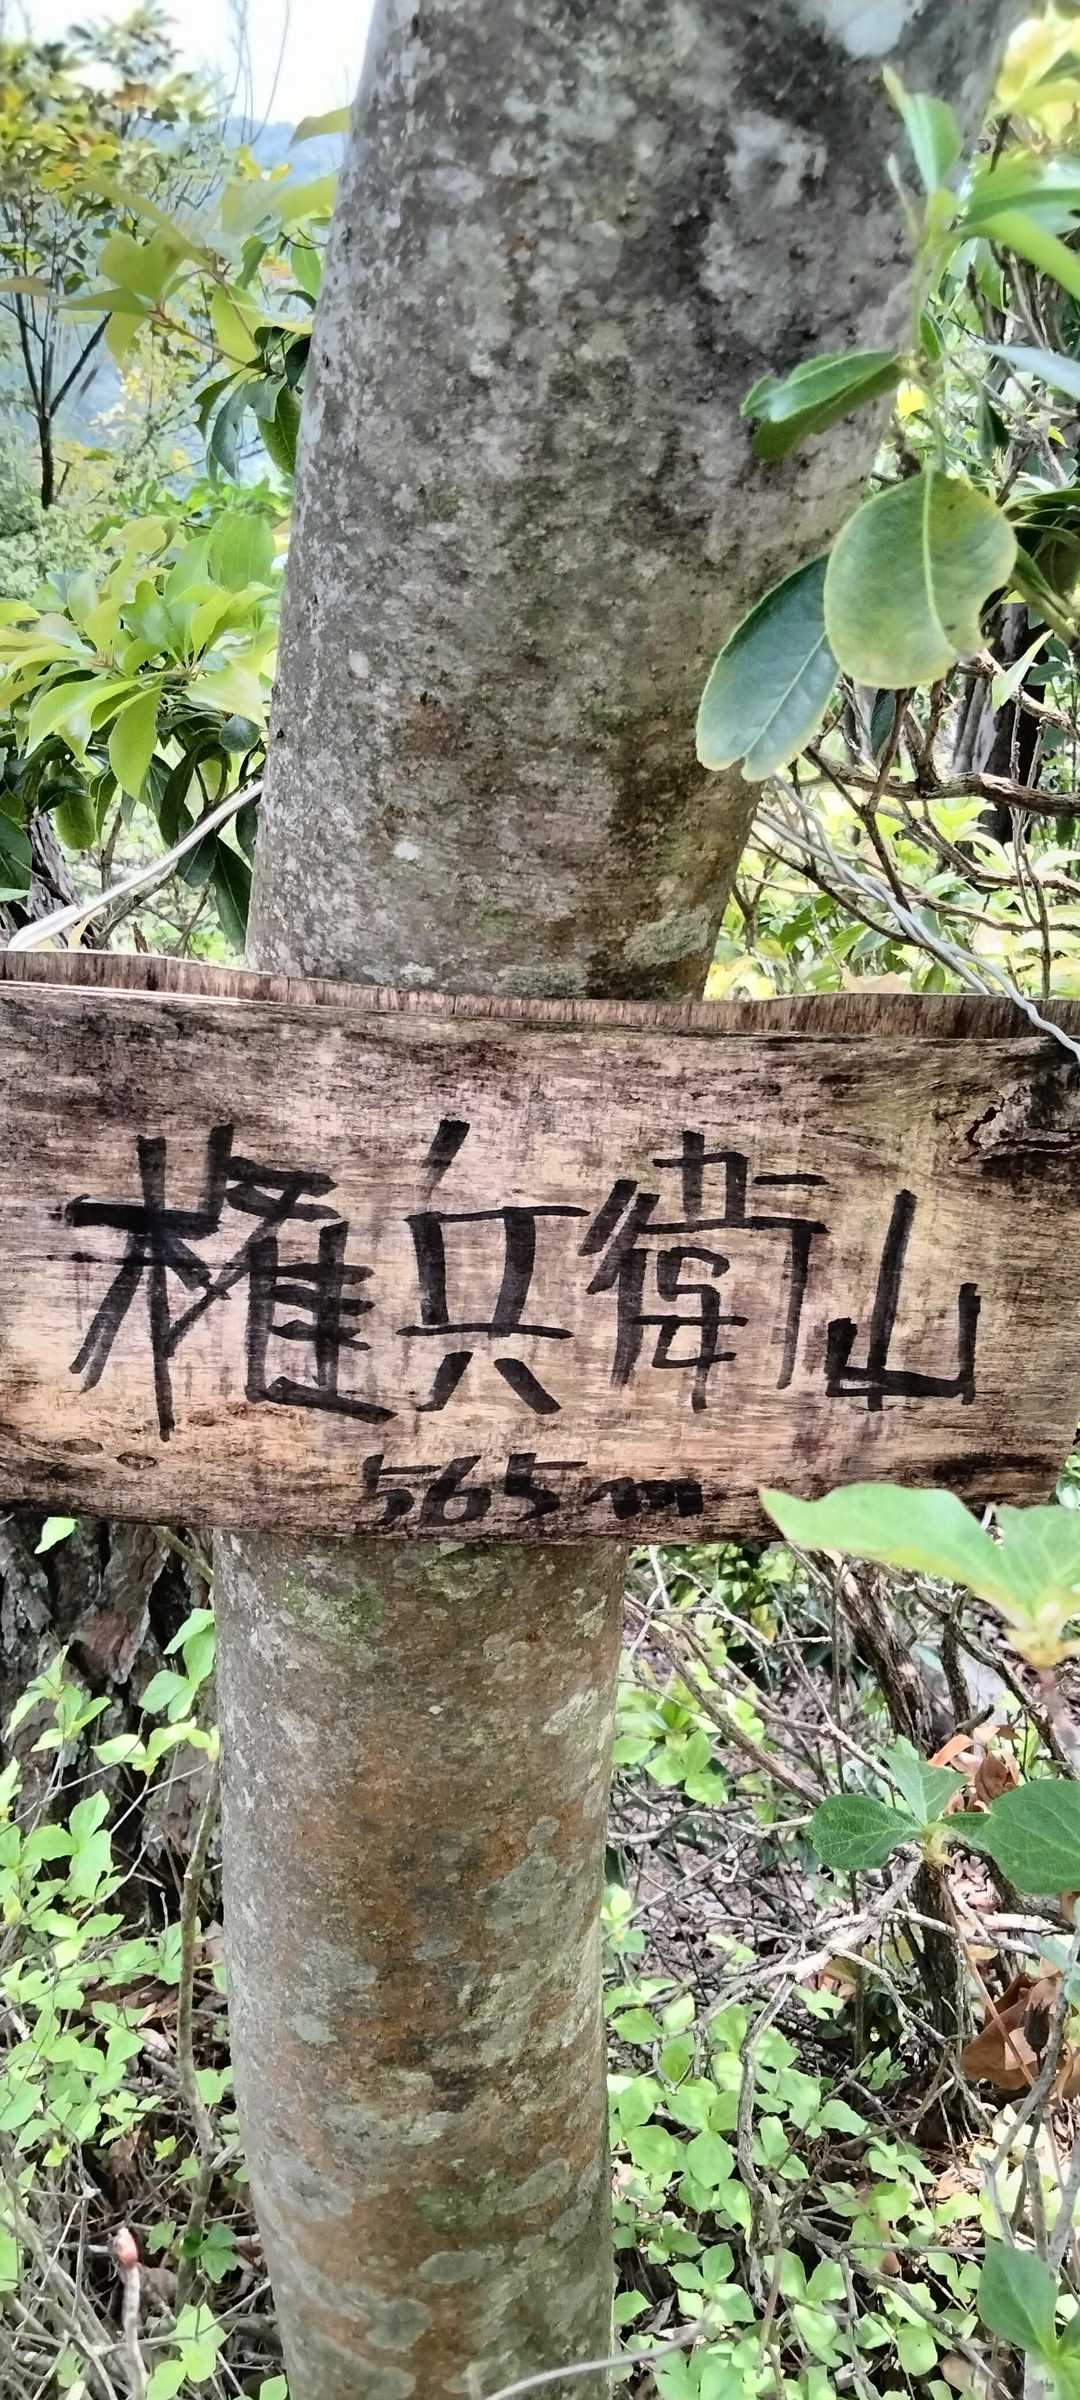 権兵衛山
565m